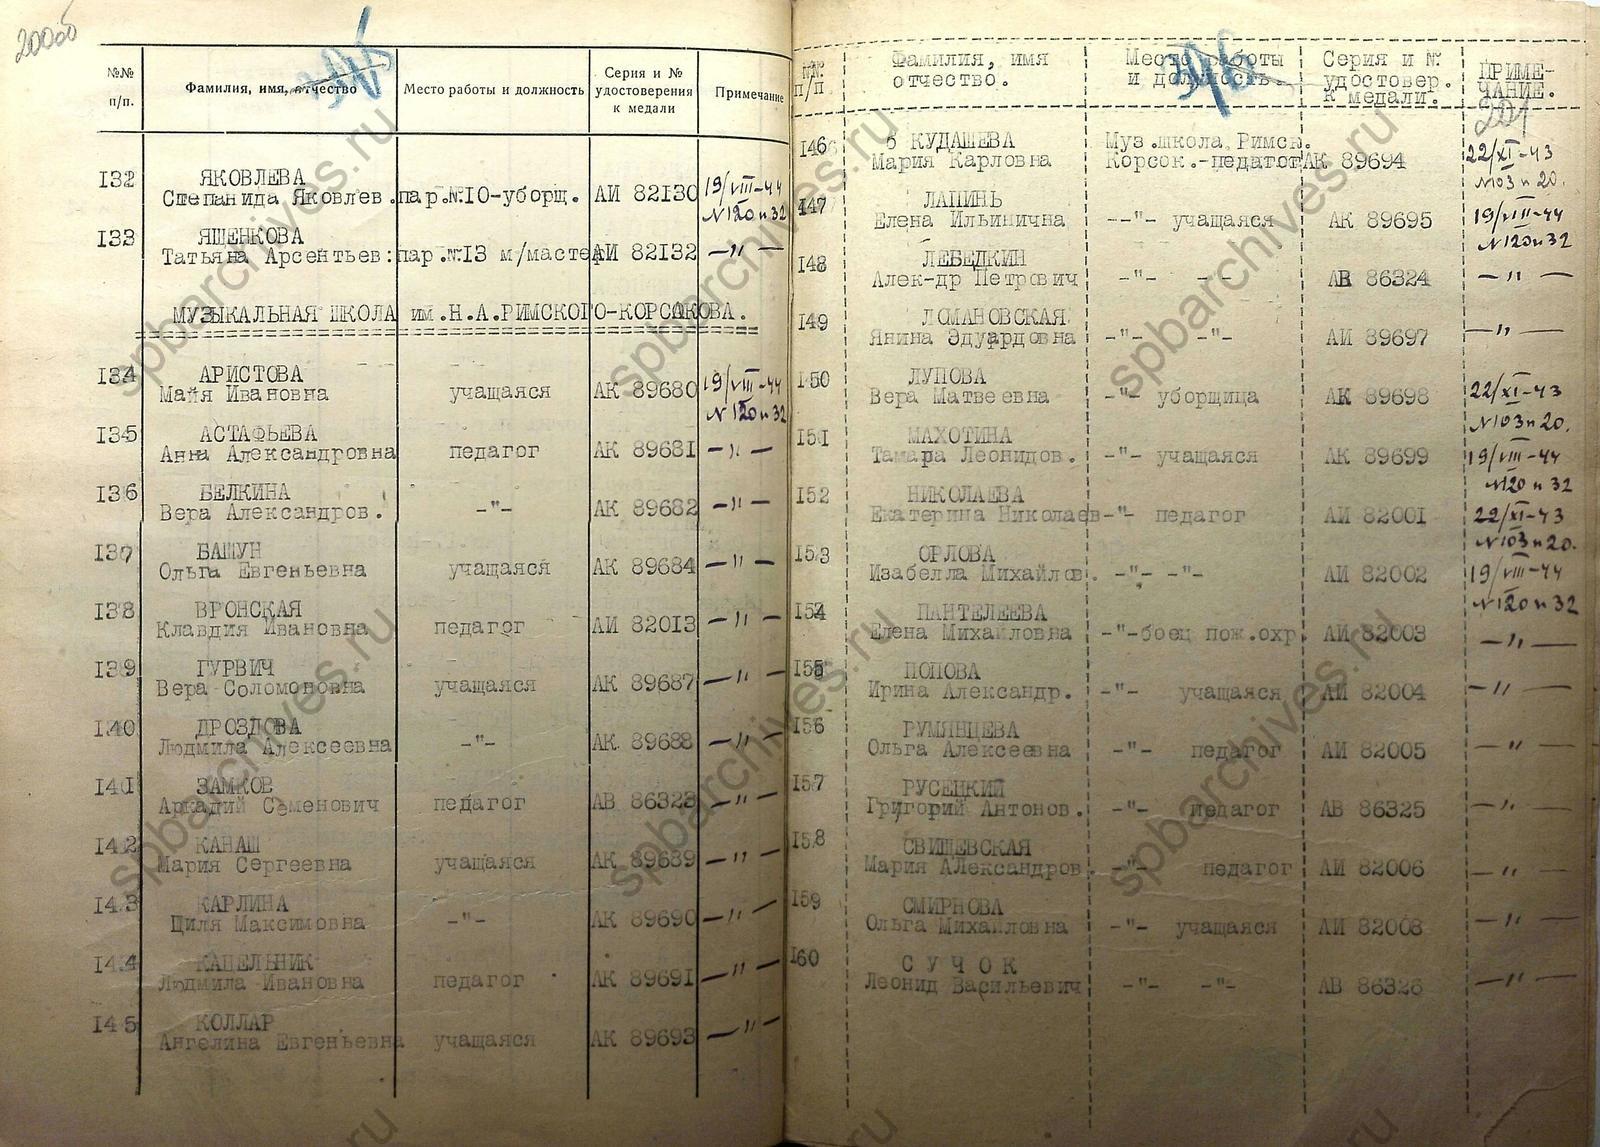 200об
№№ п/п. Фамилия, имя, отчество Место работы и должность Серия и № удостоверения к медали Примечание
132 ЯКОВЛЕВА
Степанида Яковлев. пар.№10-уборщ. АИ 82130 19/VIII-44
№120 п 32
133 ЯШЕНКОВА
Татьяна Арсентьев: пар.№13 м/мастер АИ 82132 —"—
МУЗЫКАЛЬНАЯ ШКОЛА им.Н.А.РИМСКОГО-КОРСАКОВА.
134 АРИСТОВА
Майя Ивановна учащаяся АК 89680 19/VIII-44
№120 п 32
135 АСТАФЬЕВА
Анна Александровна педагог АК 89681 —"—
136 БЕЛКИНА
Вера Александров. -"- АК 89682 —"—
137 БАШУН
Ольга Евгеньевна учащаяся АК 89684 —"—
138 ВРОНСКАЯ
Клавдия Ивановна педагог АИ 82013 —"—
139 ГУРВИЧ
Вера Соломоновна учащаяся АК 89687 —"—
140 ДРОЗДОВА
Людмила Алексеевна -"- АК 89688 —"—
141 ЗАМКОВ
Аркадий Семенович педагог АВ 86323 —"—
142 КАНАШ
Мария Сергеевна учащаяся АК 89689 —"—
143 КАРЛИНА
Циля Максимовна -"- АК 89690 —"—
144 КАЦЕЛЬНИК
Людмила Ивановна педагог АК 89691 —"—
145 КОЛЛАР
Ангелина Евгеньевна учащаяся АК 89693 —"—
№№ п/п Фамилия, имя отчество. Место работы и должность. Серия и № удостовер. к медали. ПРИМЕ-ЧАНИЕ.
201
146 КУДАШЕВА Муз.школа Римск.
Мария Карловна Корсок.-педагог АК 89694 22/XI-43
№103 п 20.
147 ЛАПИНЬ
Елена Ильинична --"- учащаяся АК 89695 19/VIII-44
№120 п 32
148 ЛЕБЕДКИН
Алек-др Петрович -"- -"- АВ 86324 —"—
149 ЛОМАНОВСКАЯ
Янина Эдуардовна -"- -"- АИ 89697 —"—
150 ЛУПОВА
Вера Матвеевна -"- уборщица АК 89698 22/XI-43
№103 п 20.
151 МАХОТИНА
Тамара Леонидов. -"- учащаяся АК 89699 19/VIII-44
№120 п 32
152 НИКОЛАЕВА
Екатерина Николаев -"- педагог АИ 82001 22/XI-43
№103 п 20.
153 ОРЛОВА
Изабелла Михайлов. -"- -"- АИ 82002 19/VIII-44
№120 п 32
154 ПАНТЕЛЕЕВА
Елена Михайловна -"-боец пож.охр. АИ 82003 —"—
155 ПОПОВА
Ирина Александр. -"- учащаяся АИ 82004 —"—
156 РУМЯНЦЕВА
Ольга Алексеевна -"- педагог АИ 82005 —"—
157 РУСЕЦКИЙ
Григорий Антонов. -"- педагог АВ 86325 —"—
158 СВИЩЕВСКАЯ
Мария Александров. -"- педагог АИ 82006 —"—
159 СМИРНОВА
Ольга Михайловна -"- учащаяся АИ 82008 —"—
160 СУЧОК
Леонид Васильевич -"- -"- АВ 86326 —"—
spbarchives.ru